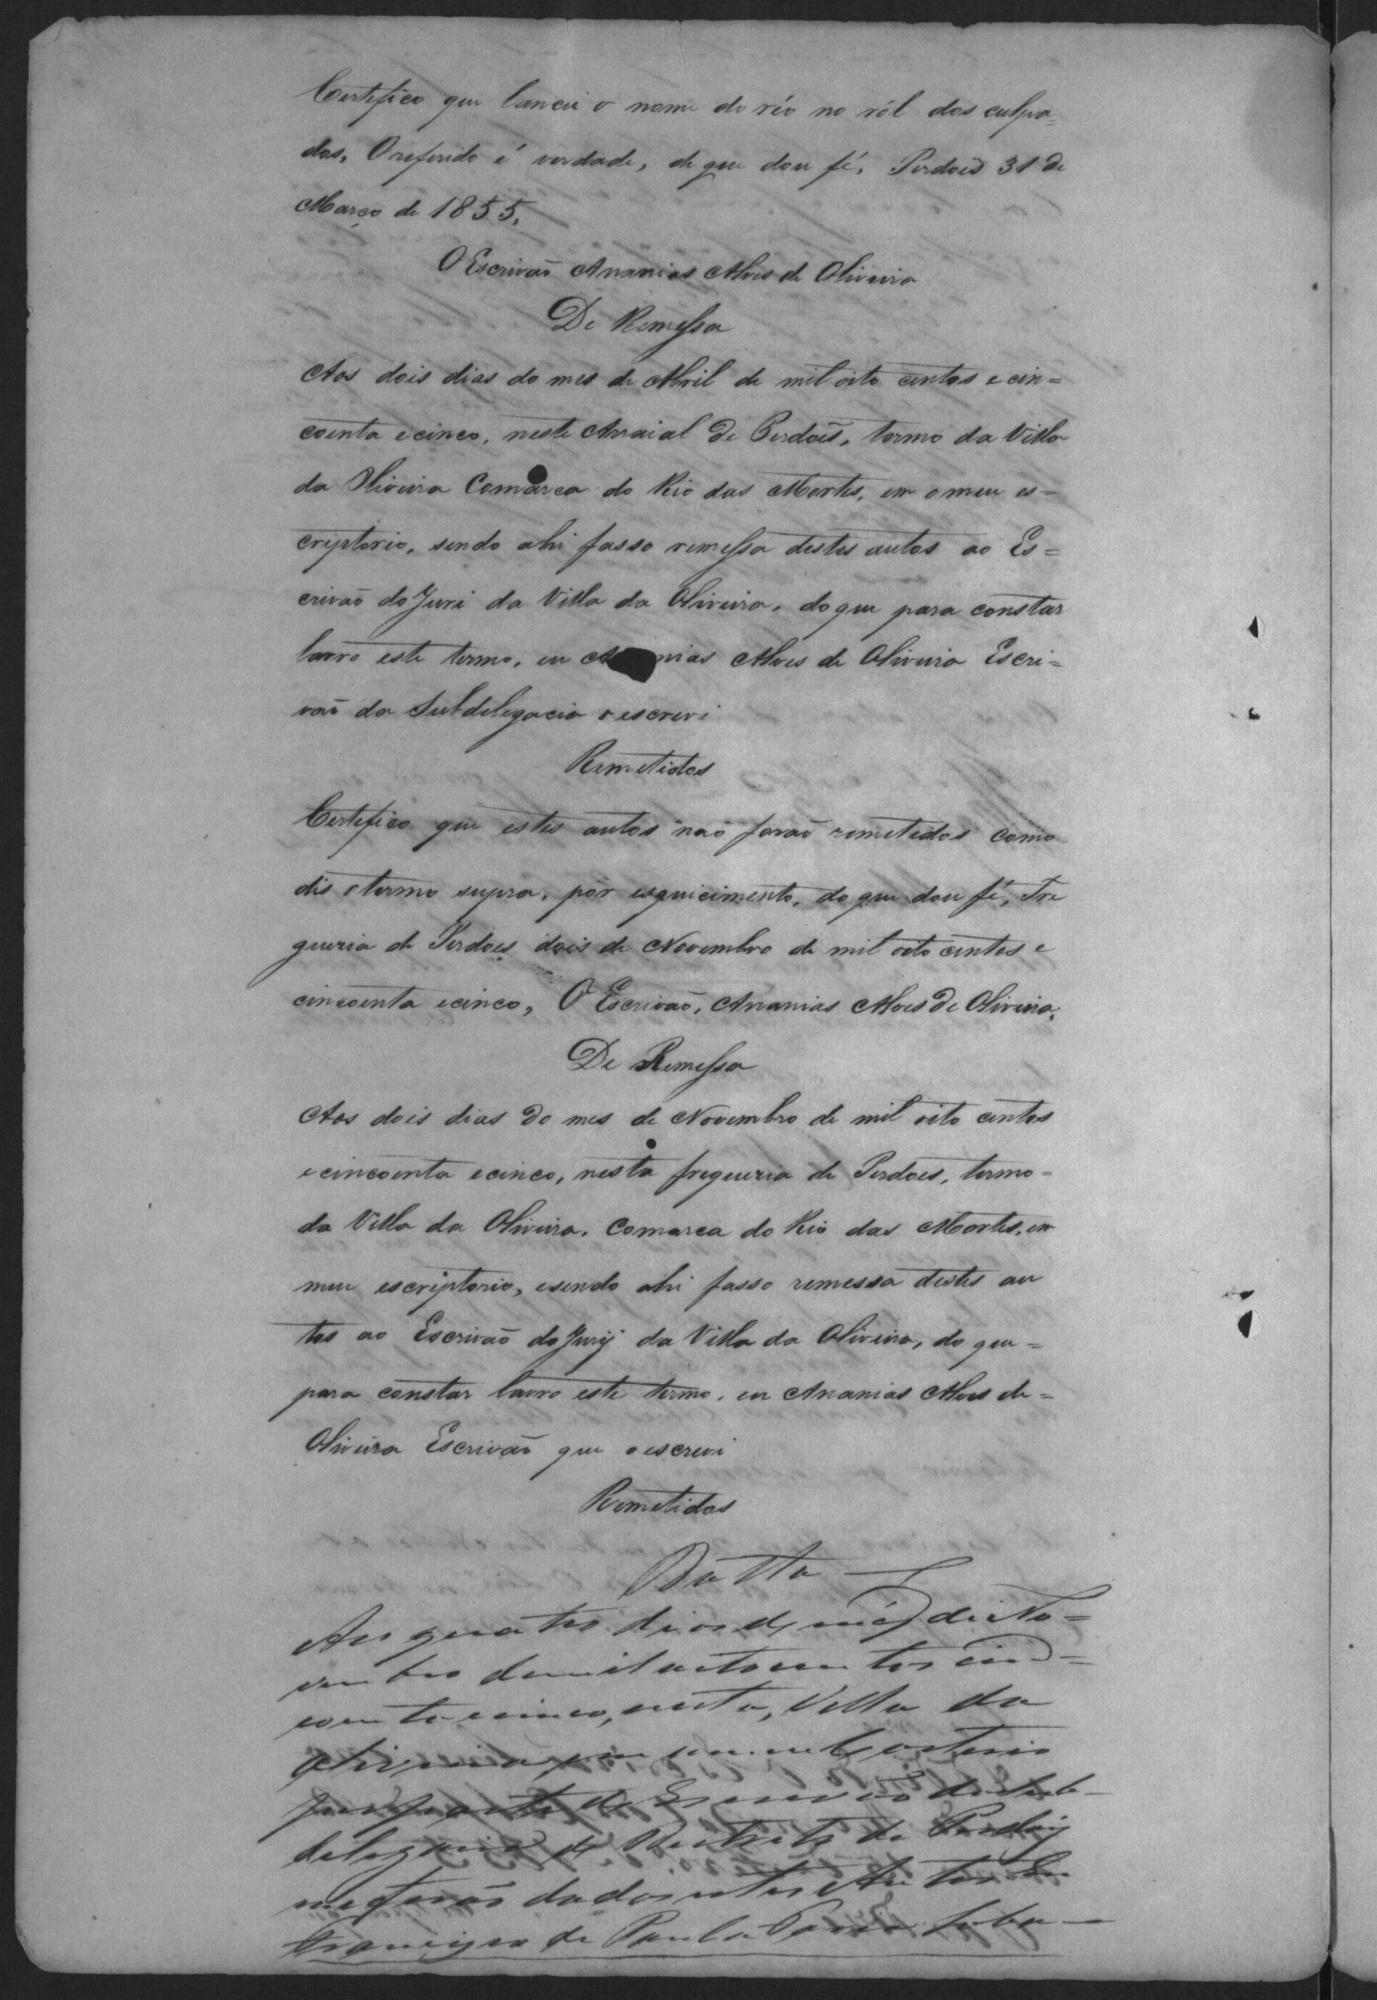 Certefico que lancei o nome do réo no ról dos culpa=
dos, O referido é verdade, de que dou fé, Perdoes 31 de
Março de 1855,
O Escrivaõ Ananias Alves de Oliveira
De Remessa
Aos dois dias do mes de Abril de mil oito centos e cin=
coenta e cinco, neste Arraial de Perdoẽs, termo da Villa
da Oliveira Comarca do Rio das Mortes, em o meu es=
criptorio, sendo ahi fasso remessa destes autos ao Es=
crivaõ do Juri da Villa da Oliveira, do que para constar
lavro este termo, eu A nias Alves de Oliveira Escri=
vaõ da Subdelegacia o escrevi
Remetidos
Certefico que estes autos naõ foraõ remetidos como
dis o termo supra, por esquicimento, do que dou fé, Fre
guezia de Perdoes dois de Novembro de mil oito centos e
cincoenta e cinco, O Escrivaõ, Ananias Alves de Oliveira,
De Remessa
Aos dois dias do mes de Novembro de mil oito centos
e cincoenta e cinco, nesta freguezia de Perdoes, termo=
da Villa da Oliveira, Comarca do Rio das Mortes, em
meu escriptorio, e sendo ahi fasso remessa destes au
tos ao Escrivaõ do Jurij da Villa da Oliveira, do que=
para constar lavro este termo, eu Ananias Alves de=
Oliveira Escrivaõ que o escrevi
Remetidos
Datta
Aos quatro dias do méz de No=
vembro de mil oito centos cin=
coenta e cinco, nesta, Villa da
Oliveira, em meu Cartorio
por parte do Escrivaõ da Sub-
delegacia do Destricto de Perdoẽs
me foraõ dados estes Autos Eu
Francisco de Paula